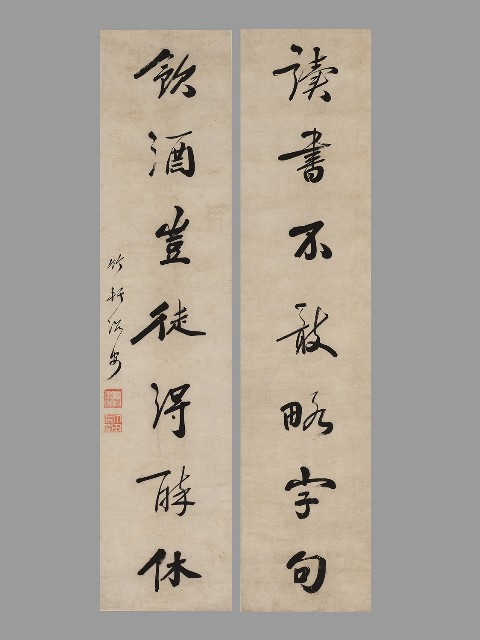 讀書不敢略字句
飲酒豈徒得醉休
竹軒